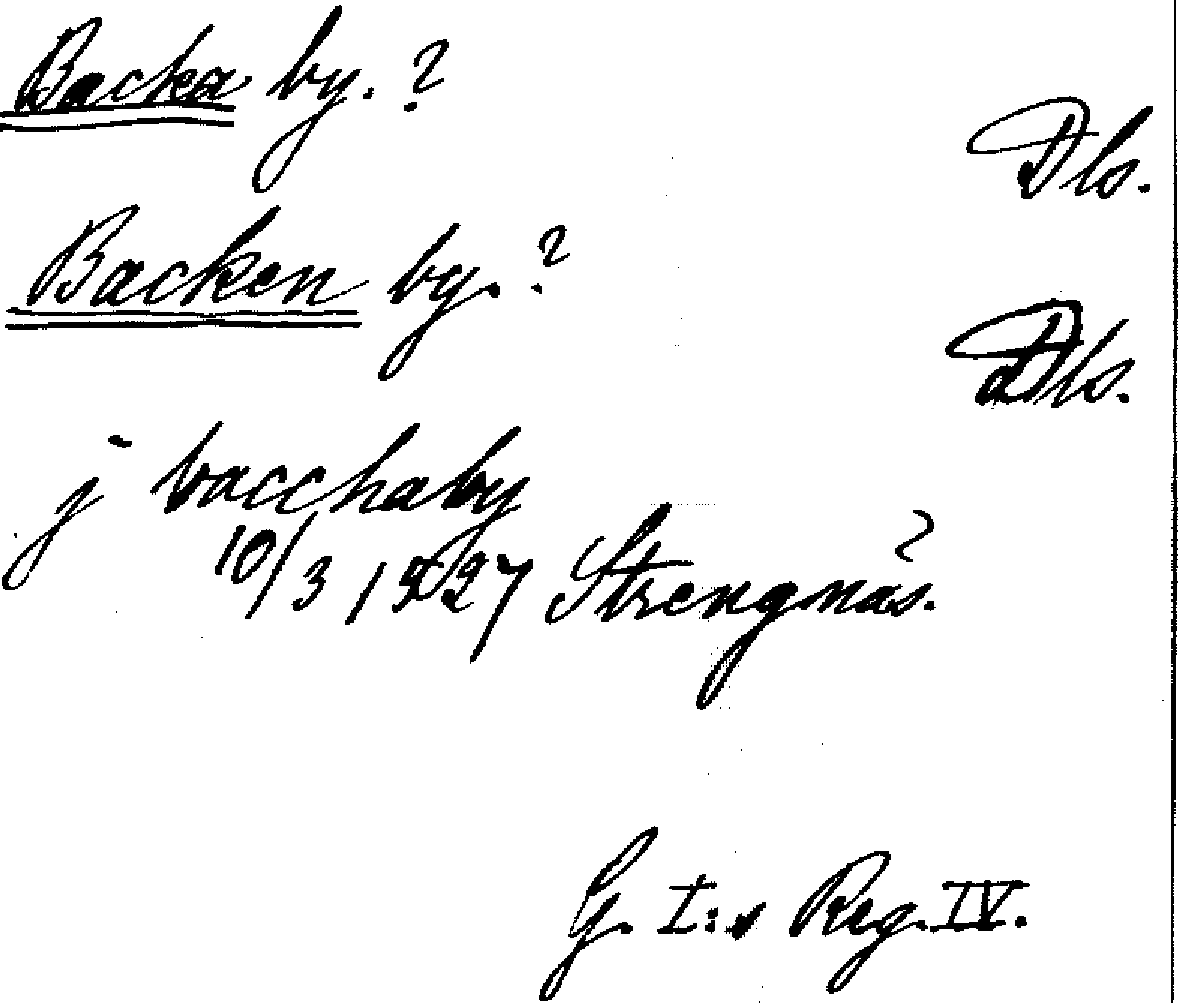 Backa by. ?
Dls.
Backen by. ?
Dls.
j bacchaby
10/3 1527 Strengnäs. ?
G. I:s Reg. IV.